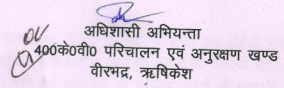 अधिशासी अभियन्ता
400के0वी0 परिचालन एवं अनुरक्षण खण्ड
वीरभद्र, ऋषिकेश